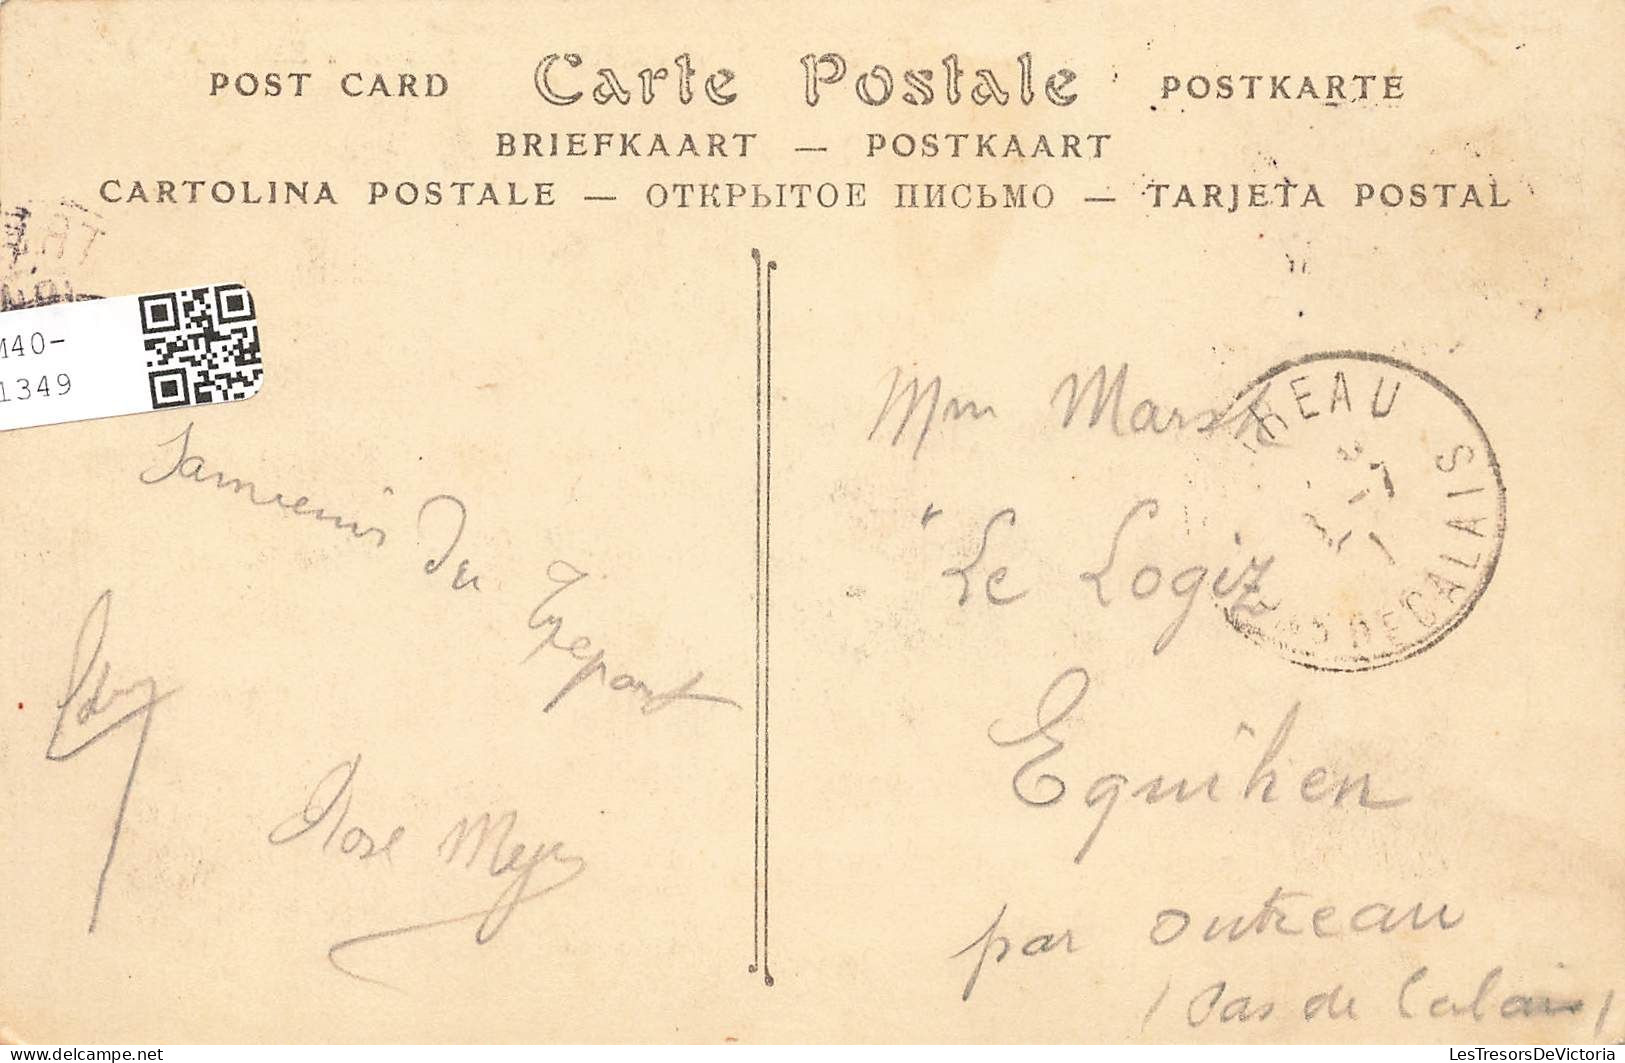 POST CARD Carte Postale POSTKARTE
BRIEFKAART — POSTKAART
CARTOLINA POSTALE — ОТКРЫТОЕ ПИСЬМО — TARJETA POSTAL
M40-
1349
Souvenir du
Treport
Rose
Mme
REAU
PAS DE CALAIS
"Le Logiz
Equihen
par Outreau
(Pas de Calais)
delcampe.net
LesTresorsDeVictoria